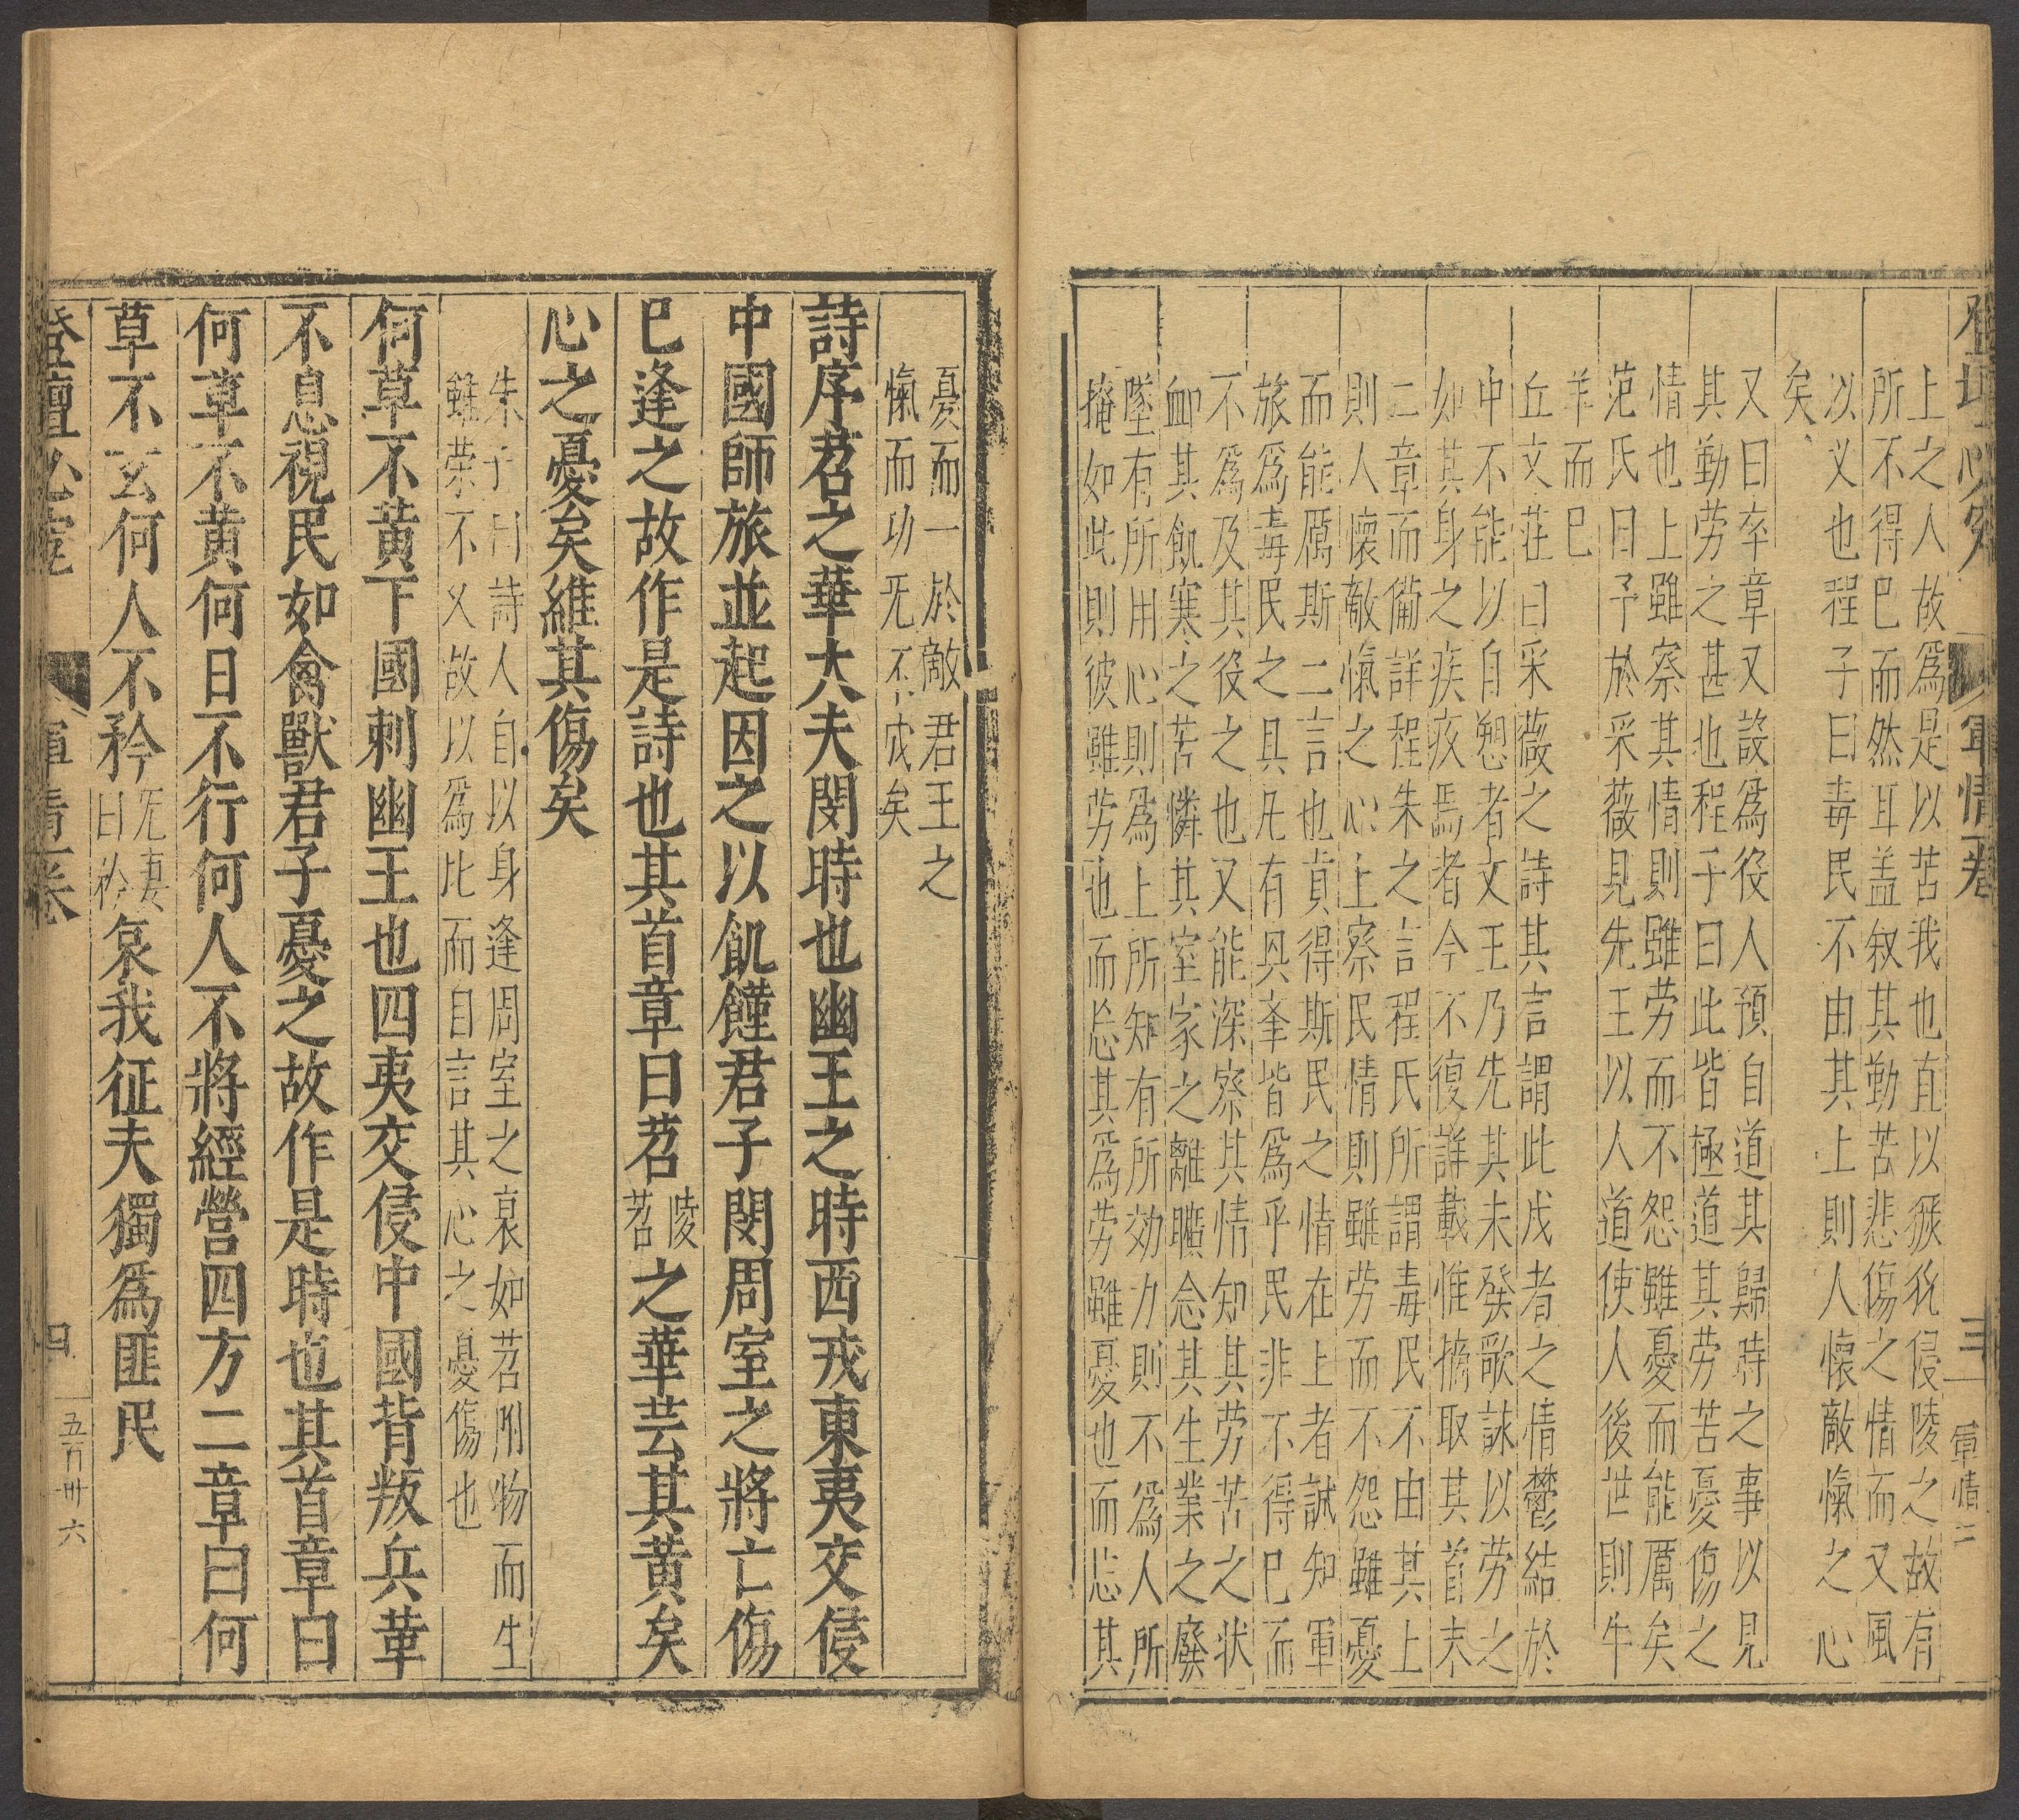 登壇必究 軍情一卷 三 軍情二
上之人故爲是以苦我也直以玁狁侵陵之故有
所不得已而然耳盖叙其勤苦悲傷之情而又風
以义也程子曰毒民不由其上則人懷敵愾之心
矣
又曰卒章又設爲役人預自道其歸時之事以見
其勤劳之甚也程子曰此皆極道其劳苦憂傷之
情也上雖察其情則雖劳而不怨雖憂而能厲矣
范氏曰予於采薇見先王以人道使人後世則牛
羊而已
丘文莊曰采薇之詩其言謂此戍者之情鬱結於
中不能以自恕者文王乃先其未發歌詠以劳之
如其身之疾疚焉者今不復詳載惟摘取其首末
二章而備詳程朱之言程氏所謂毒民不由其上
則人懷敵愾之心上察民情則雖劳而不怨雖憂
而能厲斯二言也貞得斯民之情在上者誠知軍
旅爲毒民之具凡有興㪯皆爲乎民非不得已而
不爲及其役之也又能深察其情知其劳苦之状
䘏其飢寒之苦憐其室家之離曠念其生業之廢
墜有所用心則爲上所知有所効力則不爲人所
掩如此則彼雖劳也而忘其爲劳雖憂也而忘其
憂而一於敵君王之
愾而功旡不成矣
詩序苕之華大夫閔時也幽王之時西戎東夷交侵
中國師旅並起因之以飢饉君子閔周室之將亡傷
已逢之故作是詩也其首章曰苕陵苕之華芸其黄矣
心之憂矣維其傷矣
朱子曰詩人自以身逢周室之衰如苕附物而生
雖荣不乆故以爲比而自言其心之憂傷也
何草不黄下國刺幽王也四夷交侵中國背叛兵革
不息視民如禽獸君子憂之故作是時也其首章曰
何草不黄何日不行何人不將經營四方二章曰何
草不玄何人不矜旡妻曰矜哀我征夫獨爲匪民
登壇必究 軍情一卷 四 五百卅六